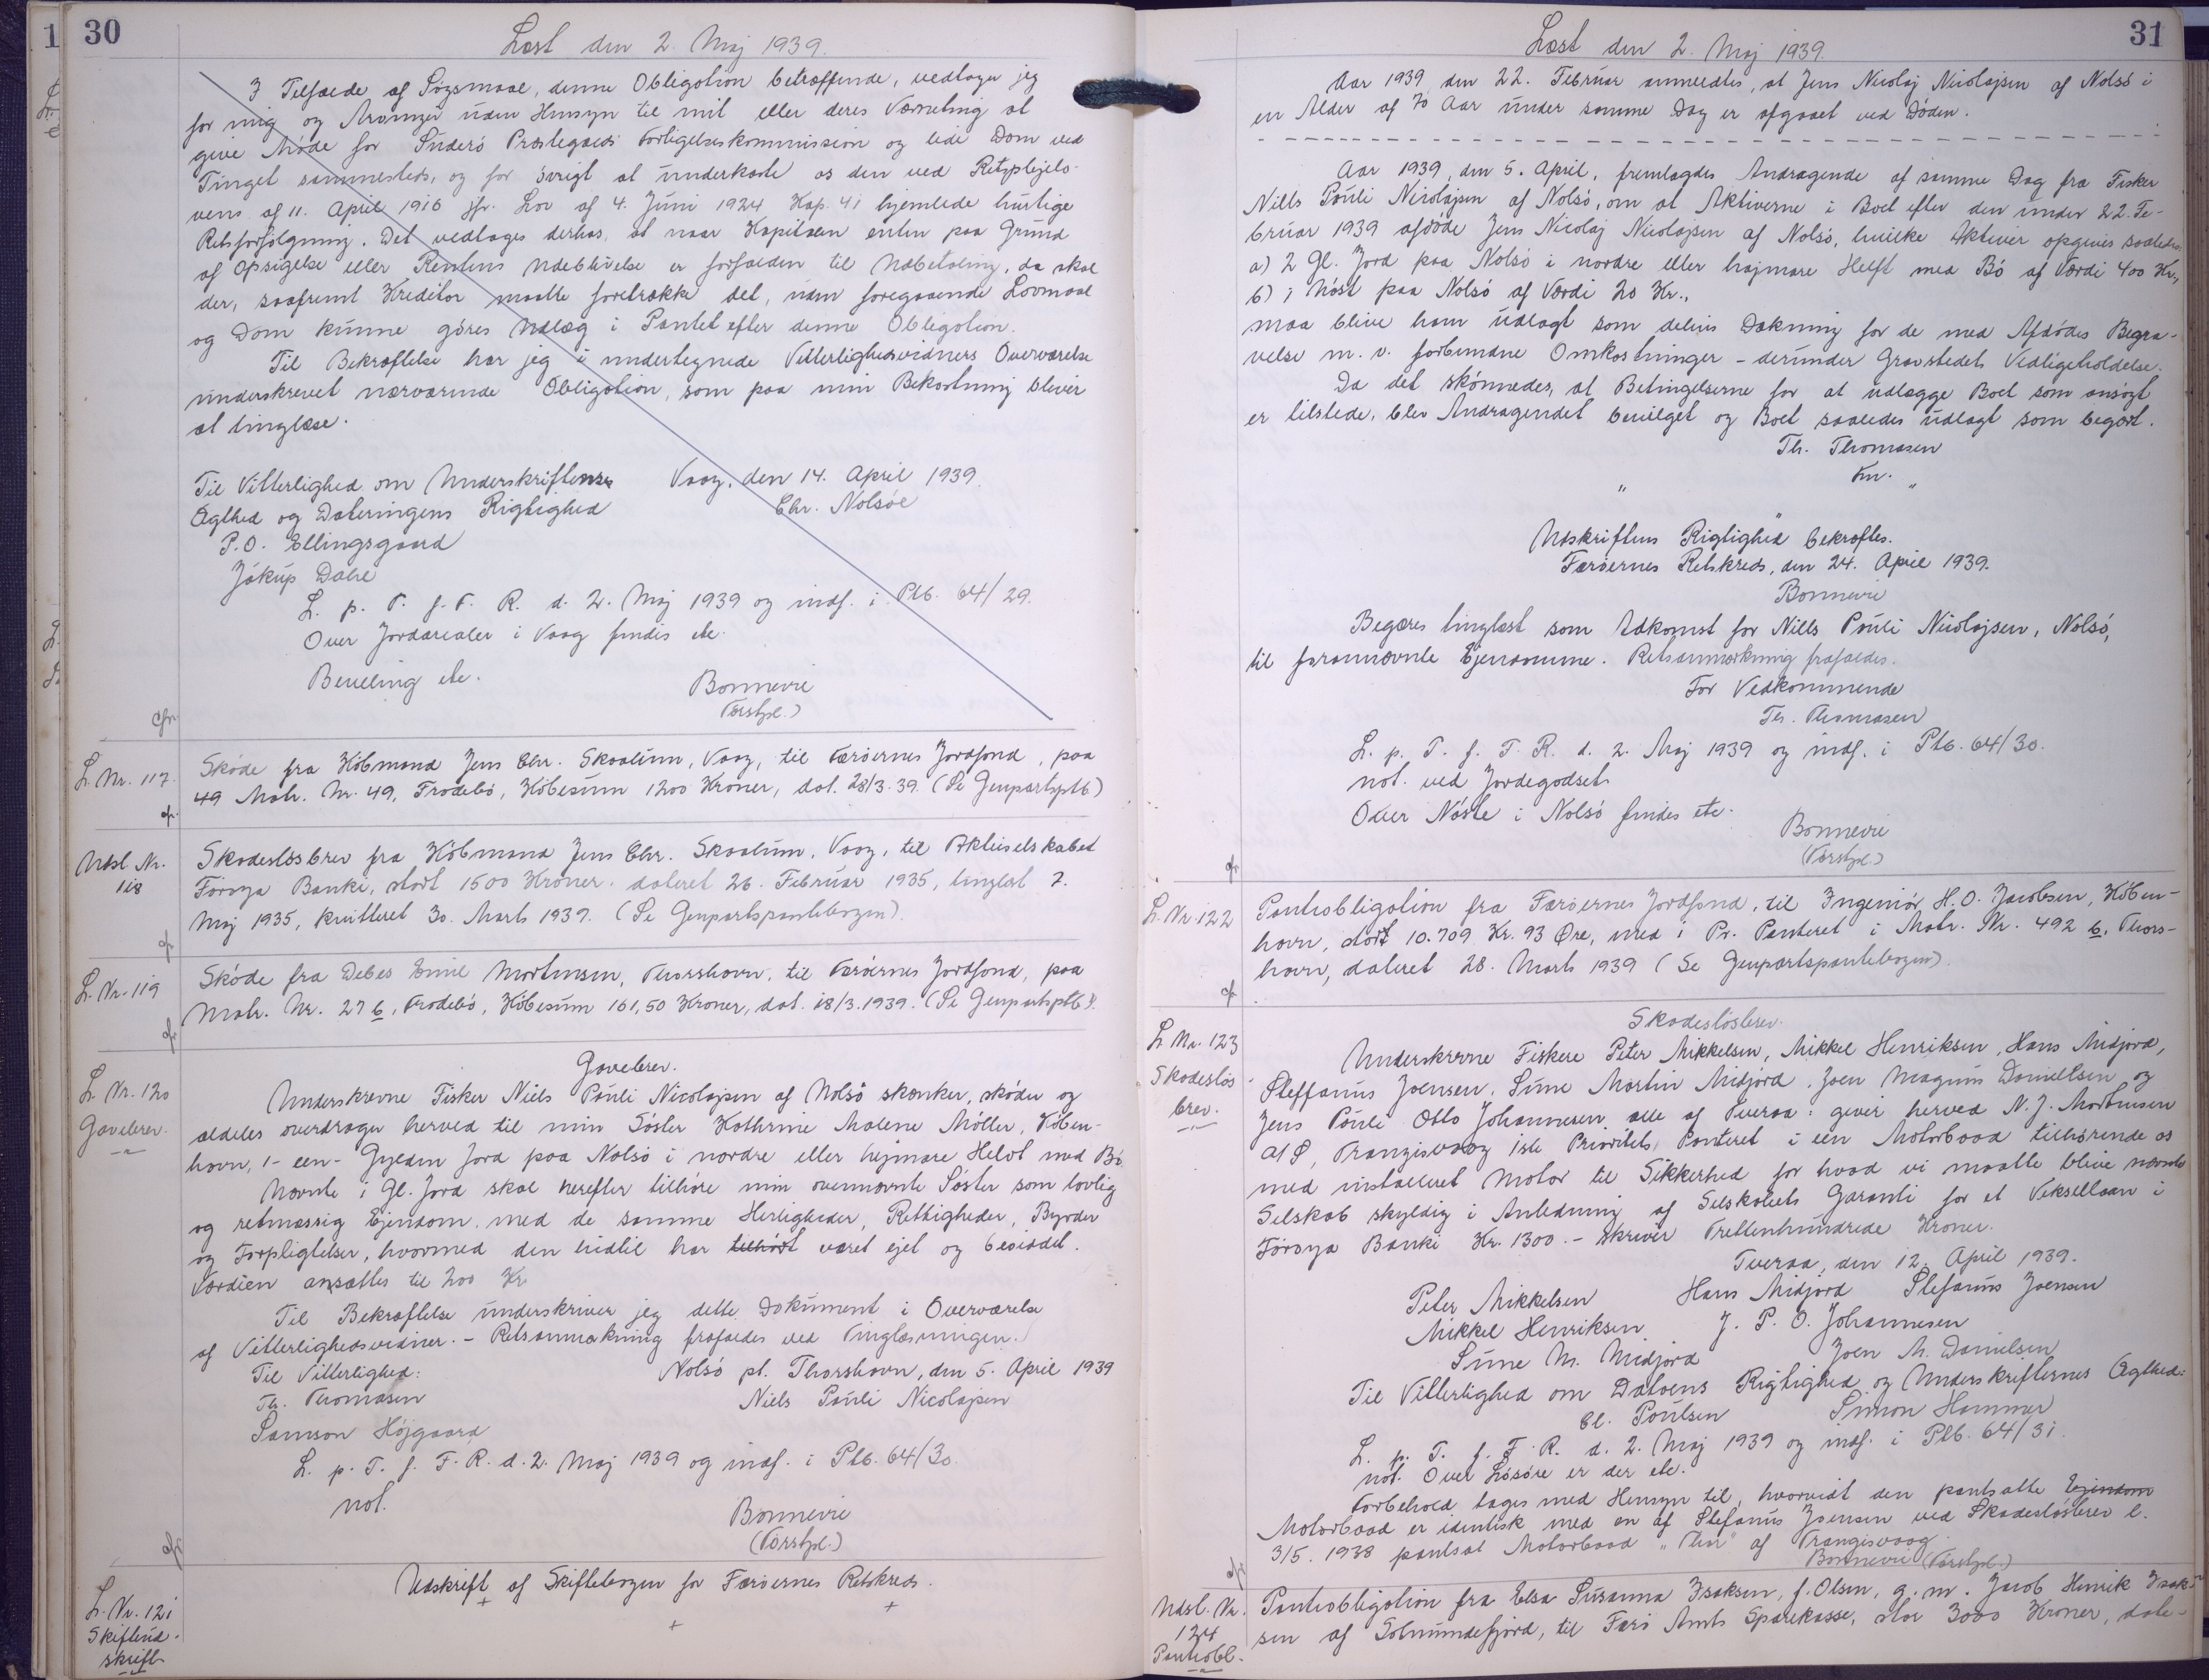 30
Læst den 2. Maj 1939.
I Tilfælde af Søgsmaal, denne Obligation betræffende, vedtager jeg
for mig og Arvinger uden Hensyn til mit eller deres Værneting at
give Møde for Suderø Præstegælds Forligelseskommission og lide Dom ved
Tinget sammesteds, og for övrigt at underkaste os den ved Retsplejelo-
vens af 11. April 1916 jfr. Lov af 4. Juni 1924 Kap. 41 hjemlede hurtige
Retsforfølgning. Det vedtages derhos, at naar Kapitalen enten paa Grund
af Opsigelse eller Rentens Udeblivelse er forfalden til Udbetaling, da skal
der, saafremt Kreditor maatte foretrække det, uden foregaaende Lovmaal
og Dom kunne göres Udlæg i Pantet efter denne Obligation.
Til Bekræftelse har jeg i undertegnede Vitterlighedsvidners Overværelse
underskrevet nærværende Obligation, som paa min Bekostning bliver
at tinglæse.
Til Vitterlighed om Underskriftens Vaag, den 14. April 1939.
Ægthed og Dateringens Rigtighed Chr. Nolsøe
P.O. Ellingsgaard
Jákup Dahl
L. p. T. f. F. R. d. 2. Maj 1939 og indf. i Ptb. 64/29.
Over Jordarealer i Vaag findes etc.
Bevilling etc. Bonnevie
(Förstpl.)
cfr.
L. Nr. 117. Sköde fra Köbmand Jens Chr. Skaalum, Vaag, til Færöernes Jordfond, paa
49 Matr. Nr. 49, Frodebö, Köbesum 1200 Kroner, dat. 28/3.39. (Se Genpartsptb.)
cfr.
Udsl. Nr. 118 Skadeslösbrev fra Köbmand Jens Chr. Skaalum, Vaag, til Aktieselskabet
Föroya Banki, stort 1500 Kroner, dateret 26. Februar 1935, tinglæst 7.
Maj 1935, kvitteret 30. Marts 1939. (Se Genpartspantebogen).
cfr.
L. Nr. 119 Sköde fra Debes Emil Mortensen, Thorshavn, til Færöernes Jordfond, paa
Matr. Nr. 27 b, Frodebö, Köbesum 161,50 Kroner, dat. 18/3.1939. (Se Genpartsptb.).
cfr.
L. Nr. 120
Gavebrev.
Gavebrev.
Underskrevne Fisker Niels Pouli Nicolajsen af Nolsö skænker, sköder og
aldeles overdrager herved til min Söster Kathrine Malene Möller, Köben-
havn, 1 - een - Gylden Jord paa Nolsö i nordre eller hejmare Helvt med Bö.
Nævnte i Gl. Jord skal herefter tilhöre min ovennævnte Söster som lovlig
og retmæssig Ejendom, med de samme Herligheder, Rettigheder, Byrder
og Forpligtelser, hvormed den hidtil har tilhört været ejet og besiddet.
Værdien ansættes til 200 Kr.
Til Bekræftelse underskriver jeg dette Dokument i Overværelse
af Vitterlighedsvidner. - Retsanmærkning frafaldes ved Tinglæsningen.
Til Vitterlighed: Nolsö pt. Thorshavn, den 5. April 1939
Th. Thomasen Niels Pouli Nicolajsen
Samson Höjgaard
L. p. T. f. F. R. d. 2. Maj 1939 og indf. i Ptb. 64/30.
not. Bonnevie
(Förstpl.)
cfr.
L. Nr. 121
Skifteud-
skrift
Udskrift af Skiftebogen for Færöernes Retskreds.
31
Læst den 2. Maj 1939.
Aar 1939, den 22. Februar anmeldtes, at Jens Nicolaj Nicolajsen af Nolsö i
en Alder af 70 Aar under samme Dag er afgaaet ved Döden.
Aar 1939, den 5. April, fremlagdes Andragende af samme Dag fra Fisker
Niels Pouli Nicolajsen af Nolsö, om at Aktiverne i Boet efter den under 22. Fe-
bruar 1939 afdöde Jens Nicolaj Nicolajsen af Nolsö, hvilke Aktiver opgives saaledes
a) 2 Gl. Jord paa Nolsö i nordre eller hajmare Helft med Bö af Værdi 400 Kr.,
b) 1 Nöst paa Nolsö af Værdi 20 Kr.,
maa blive ham udlagt som delvis Dækning for de med Afdödes Begra-
velse m. v. forbundne Omkostninger - derunder Gravstedets Vedligeholdelse.
Da det skönnedes, at Betingelserne for at udlægge Boet som ansögt
er tilstede, blev Andragendet bevilget og Boet saaledes udlagt som begært.
Th. Thomasen
Fm.
" "
"
Udskriftens Rigtighed bekræftes.
Færöernes Retskreds, den 24. April 1939.
Bonnevie
Begæres tinglæst som Adkomst for Niels Pouli Nicolajsen, Nolsö,
til forannævnte Ejendomme. Retsanmærkning frafaldes.
For Vedkommende
Th. Thomasen
L. p. T. f. F. R. d. 2. Maj 1939 og indf. i Ptb. 64/30.
not. ved Jordegodset.
Over Nöste i Nolsö findes etc.
Bonnevie
(Förstpl.)
cfr.
L. Nr. 122 Panteobligation fra Færöernes Jordfond, til Ingeniör H. O. Jacobsen, Köben-
havn, stort 10.709 Kr. 93 Øre, med 1 Pr. Panteret i Matr. Nr. 492 b, Thors-
havn, dateret 28. Marts 1939 (Se Genpartspantebogen).
cfr.
L. Nr. 123
Skadeslös-
brev.
Skadeslösbrev.
Underskrevne Fiskere Peter Mikkelsen, Mikkel Henriksen, Hans Midjord,
Steffanus Joensen, Sune Martin Midjord, Joen Magnus Danielsen og
Jens Pouli Otto Johannesen alle af Tveraa: giver herved N. J. Mortensen
A/S, Trangisvaag 1ste Prioritets Panteret i een Motorbaad tilhörende os
med installeret Motor til Sikkerhed for hvad vi maatte blive nævnte
Selskab skyldig i Anledning af Selskabets Garanti for et Veksellaan i
Föroya Banki Kr. 1300.- skriver Trettenhundrede Kroner.
Tveraa, den 12. April 1939.
Peter Mikkelsen Hans Midjord Stefanus Joensen
Mikkel Henriksen J. P. O. Johannesen
Sune M. Midjord Joen M. Danielsen
Til Vitterlighed om Datoens Rigtighed og Underskrifternes Ægthed:
Cl. Poulsen Simon Hammer
L. p. T. f. F. R. d. 2. Maj 1939 og indf. i Ptb. 64/31.
not. Over Lösöre er der etc.
Forbehold tages med Hensyn til, hvorvidt den pantsatte Ejendom
Motorbaad er identisk med en af Stefanus Joensen ved Skadeslösbrev l.
3/5. 1938 pantsat Motorbaad "Thor" af Trangisvaag.
Bonnevie (Förstpl.)
cfr.
Udsl. Nr.
124
Panteobl.
Panteobligation fra Elsa Susanna Isaksen, f. Olsen, g. m. Jacob Henrik Isak-
sen af Solmundefjord, til Færö Amts Sparekasse, stor 3000 Kroner, date-